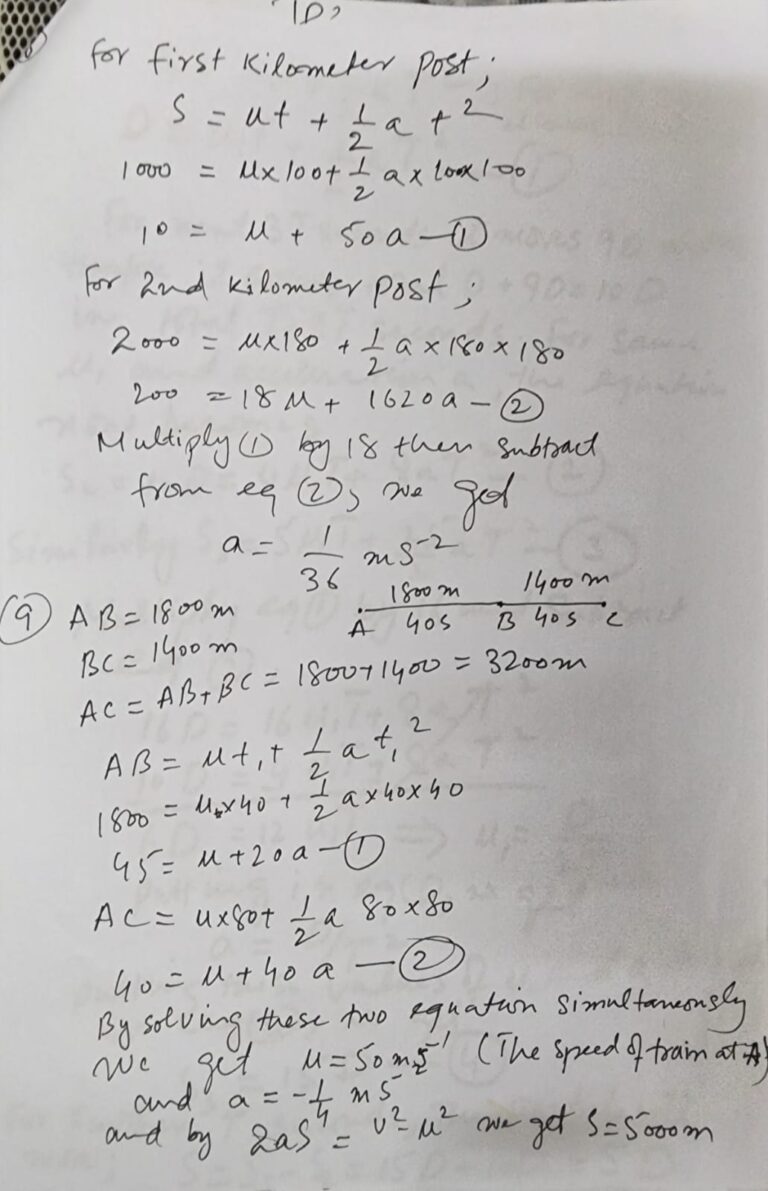 For first kilometer post;
S = ut + 1/2 a t²
1000 = u×100 + 1/2 a×100×100
10 = u + 50a —①
For 2nd kilometer post;
2000 = u×180 + 1/2 a×180×180
200 = 18u + 1620a —②
Multiply ① by 18 then subtract
from eq ②, we get
a = 1/36 ms⁻²
⑨ AB = 1800m
1800m 1400m
A 40s B 40s C
BC = 1400m
AC = AB+BC = 1800+1400 = 3200m
AB = ut₁ + 1/2 at₁²
1800 = u×40 + 1/2 a×40×40
45 = u+20a —①
AC = u×80+ 1/2 a 80×80
40 = u+40a —②
By solving these two equation simultaneously
we get u = 50ms⁻¹ (The speed of train at A)
and a = -1/4 ms⁻
and by 2aS = v²-u² we get S = 5000m